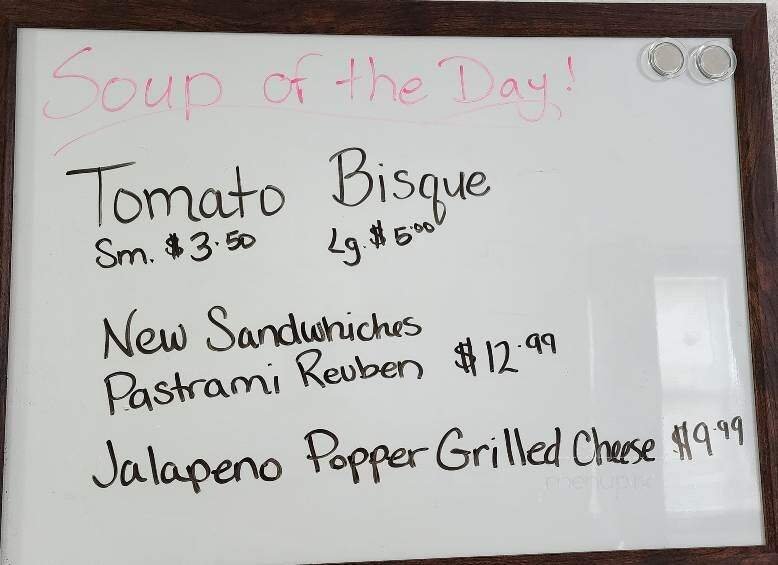 Soup of the Day!
Tomato Bisque
Sm. $3.50 Lg. $5.00
New Sandwhiches
Pastrami Reuben $12.99
Jalapeno Popper Grilled Cheese $9.99